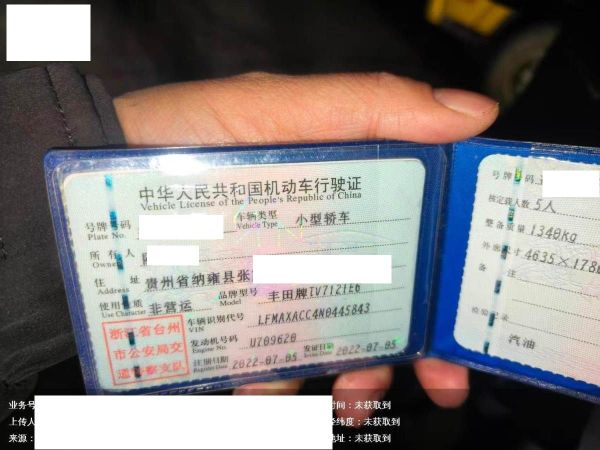 中华人民共和国机动车行驶证
Vehicle License of the People's Republic of China
号牌号码
Plate No.
车辆类型 小型轿车
Vehicle Type
所有人
Owner
住 址 贵州省纳雍县张
Address
使用性质 非营运
Use Character
品牌型号 丰田牌TV7121E6
Model
车辆识别代号 LFMAXACC4N0445843
VIN
发动机号码 U709620
Engine No.
注册日期 2022-07-05
Register Date
发证日期 2022-07-05
Issue Date
浙江省台州
市公安局交
通警察支队
号牌号码
核定载人数 5人
整备质量 1340kg
外廓尺寸 4635×178
备 注
检验记录
汽油
业务号
时间：未获取到
上传人
经纬度：未获取到
来源：
地址：未获取到